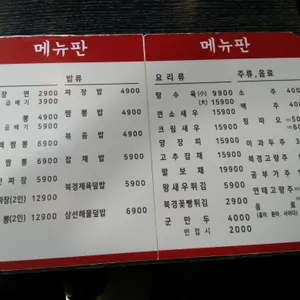 메뉴판
장 면 2900
곱빼기 3900
뽕 4900
곱빼기 5900
짬뽕 6900
짬뽕 6900
짜장 5900
짜장(2인) 12900
뽕(2인) 12900
밥류
짜 장 밥 4900
짬 뽕 밥 4900
볶 음 밥 4900
잡 채 밥 5900
북경제육덮밥 5900
삼선해물덮밥 6900
메뉴판
요 리 류
탕 수 육 (小) 9900
(大) 15900
깐 쇼 새 우 15900
크 림 새 우 15900
양 장 피 15900
고 추 잡 채 15900
팔 보 채 19900
왕새우튀김 5900
북경꽃빵튀김 2900
군 만 두 4000
반 접 시 2000
주류, 음료
소 주
맥 주
칭 따 오
이 과 두 주
북경고량주
공 부 가 주
연태고량주
음 료